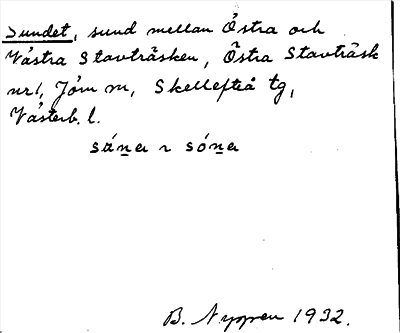 Sundet, sund mellan Östra och
Västra Stavträsken, Östra Stavträsk
nr 1, Jörn sn, Skellefteå tg,
Västerb. l.
sáṉeɩ ~ sóṉeɩ
B. Nyppen 1932.